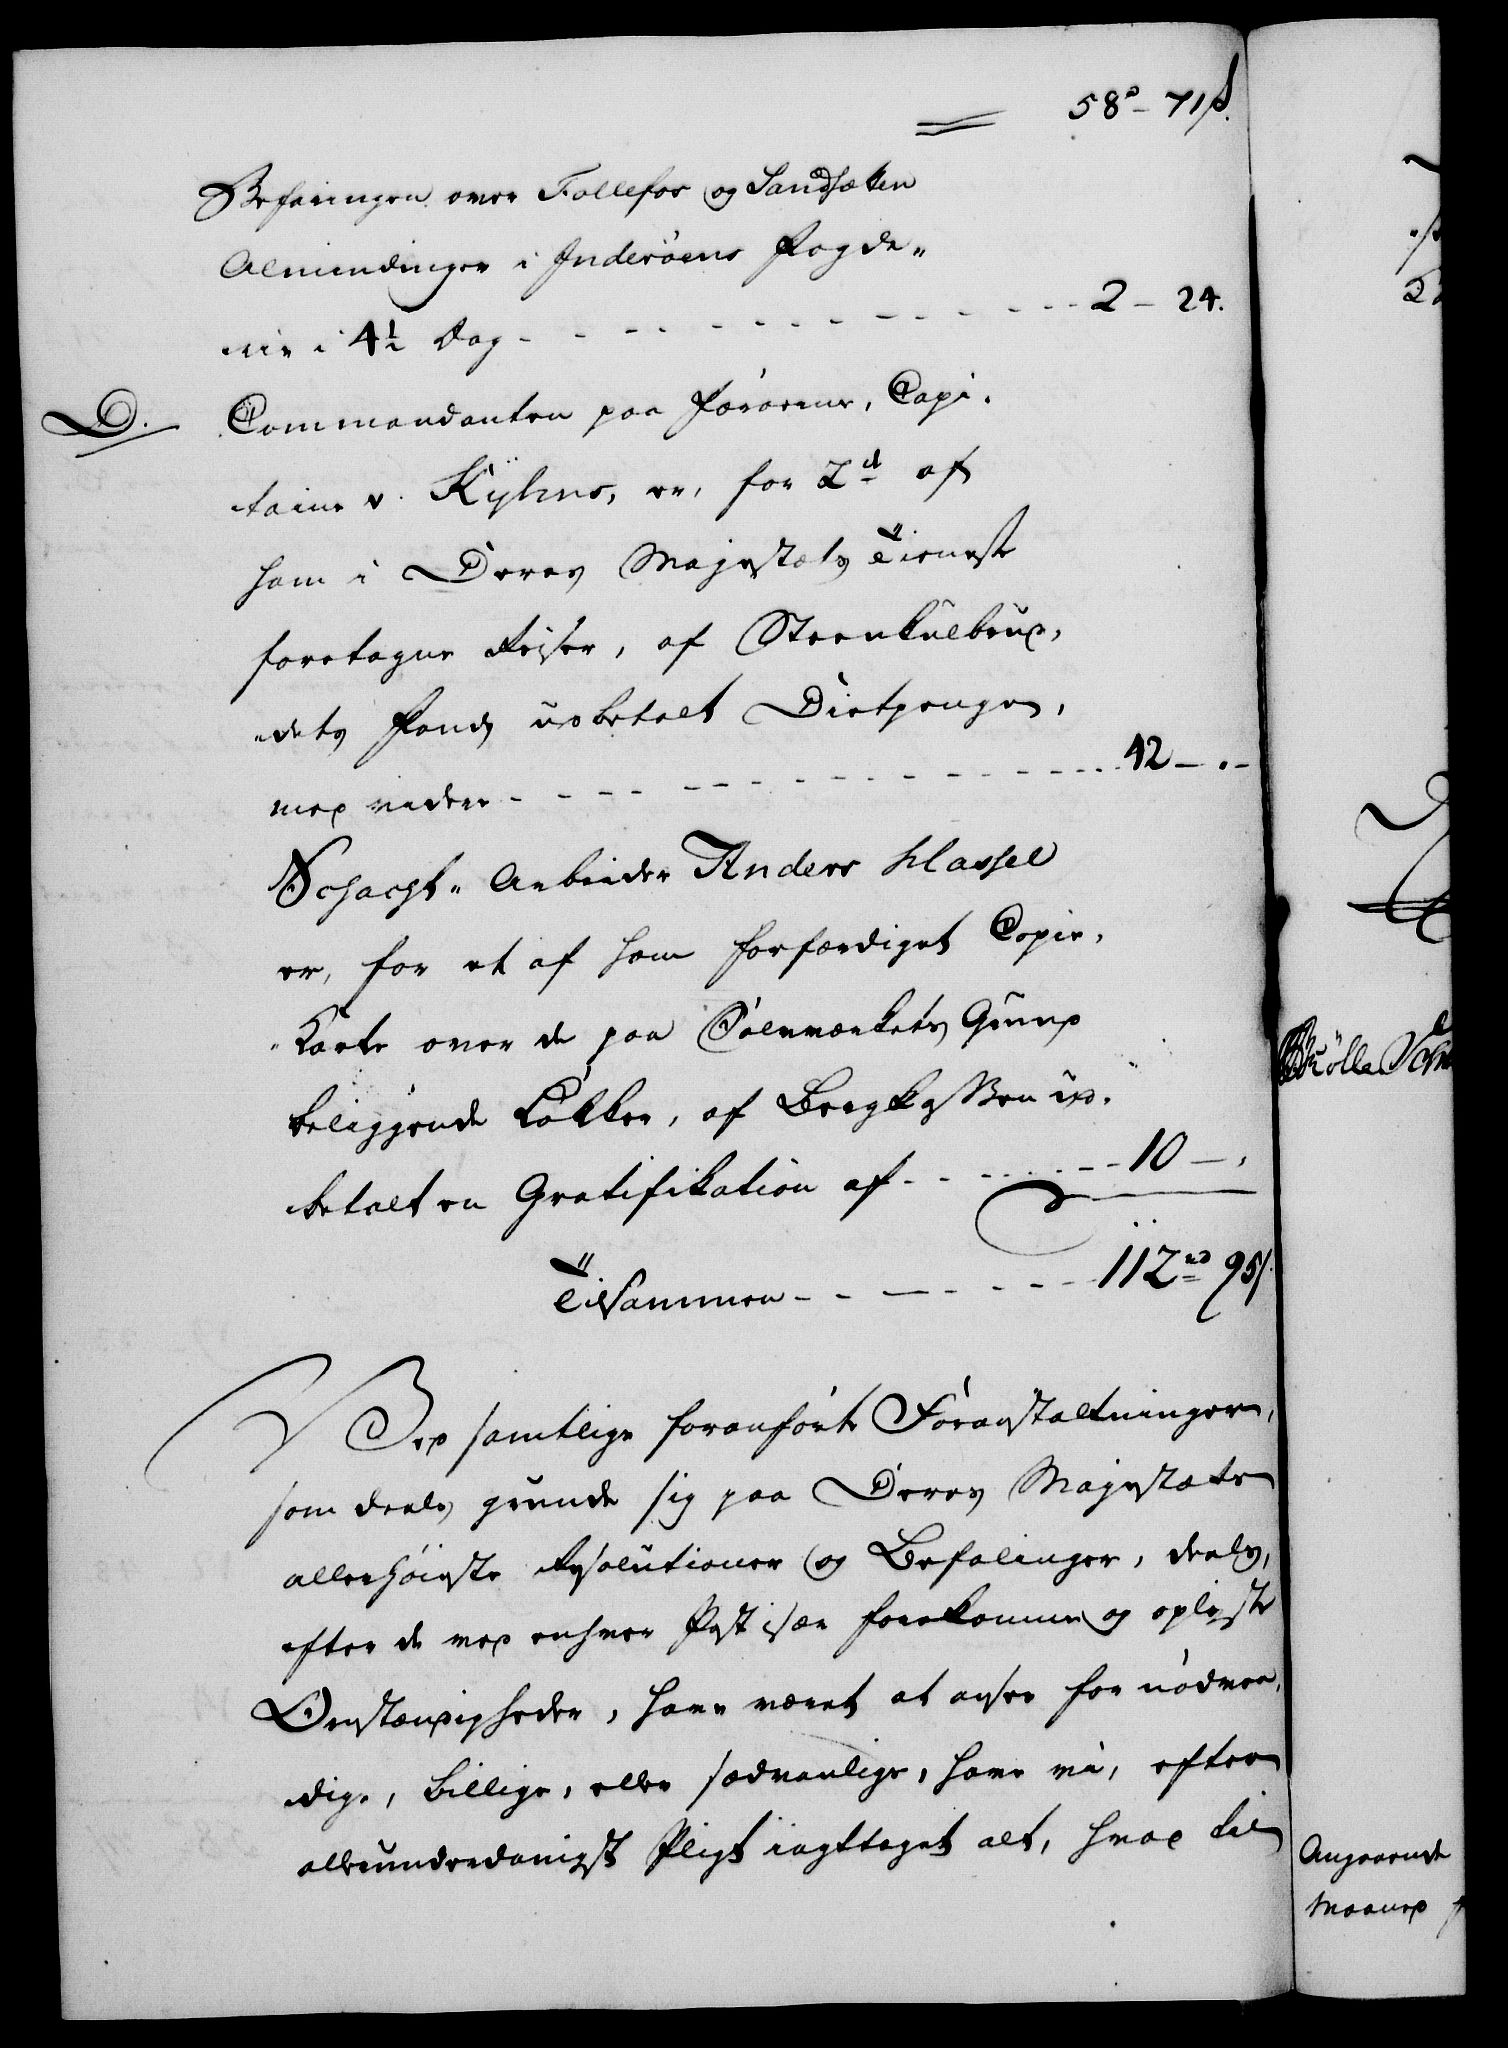 58 - 71 ß.
Befaringen over Follefos og Sandsæter
Almindinger i Inderöens Fogde-
rie i 4½ Dag - - - 2 - 24.
D. Commandanten paa Færöerne, Capi-
taine v. Kyhns, er, for 2de af
ham i Deres Majestæts Tieneste
foretagne Reiser, af Steenkulbrud-
dets Fond udbetalt Dietpenge,
med videre - - - 42 - " -
Schacht-Arbeider Anders Hassel
er, for et af ham forfærdiget Copie-
Karte over de paa Sölvværkets Grund
beliggende Lökker, af Bergkassen ud-
betalt en Gratifikation af - - - 10 - "
Tilsammen - - - 112 rd 95 ß.
Ved samtlige foranförte Foranstaltninger,
som deels grunde sig paa Deres Majestæts
allerhöieste Resolutioner og Befalinger, deels,
efter de ved enhver Post især forekomne og oplyste
Omstændigheder, have været at ansee for nödven-
dige, billige, eller sædvanlige, have vi, efter
allerunderdanigst Pligt iagttaget alt, hvad til
Angaaende
Maaned